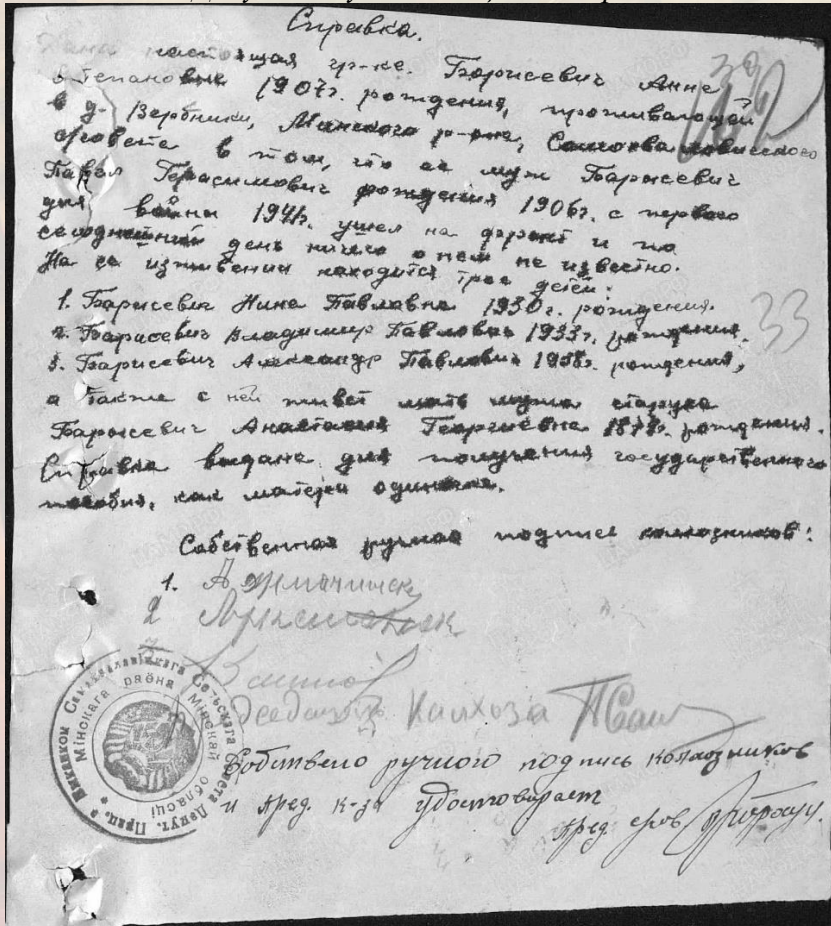 Справка.
Дана настоящая гр-ке. Борисевич Анне
Степановне 1907г. рождения, проживающей
в д. Вербники, Минского р-она, Самохваловичского
с/совета в том, что ее муж Борисевич
Павел Герасимович рождения 1906г. с первого
дня войны 1941г. ушел на фронт и по
сегодняшний день ничего о нем не известно.
На ее иждивении находится трое детей:
1. Борисевич Нина Павловна 1930г. рождения.
2. Борисевич Владимир Павлович 1933г. рождения.
3. Борисевич Александр Павлович рождения,
а также с ней живет мать мужа старуха
Борисевич Анастасия Георгиевна рождения.
Справка выдана для получения государственного
пособия, как матери одиночке.
Собственная ручная подпись колхозников:
1.
2
3
Председатель Калхоза
Собствено ручного подпись колхозников
и пред. к-за удостоверает
Пред. с/сов
39
33
Выканком Самахвалавіцкага Сельскага Савета Дэпут. Прац.
Мінскага раёна Мінскай обласці